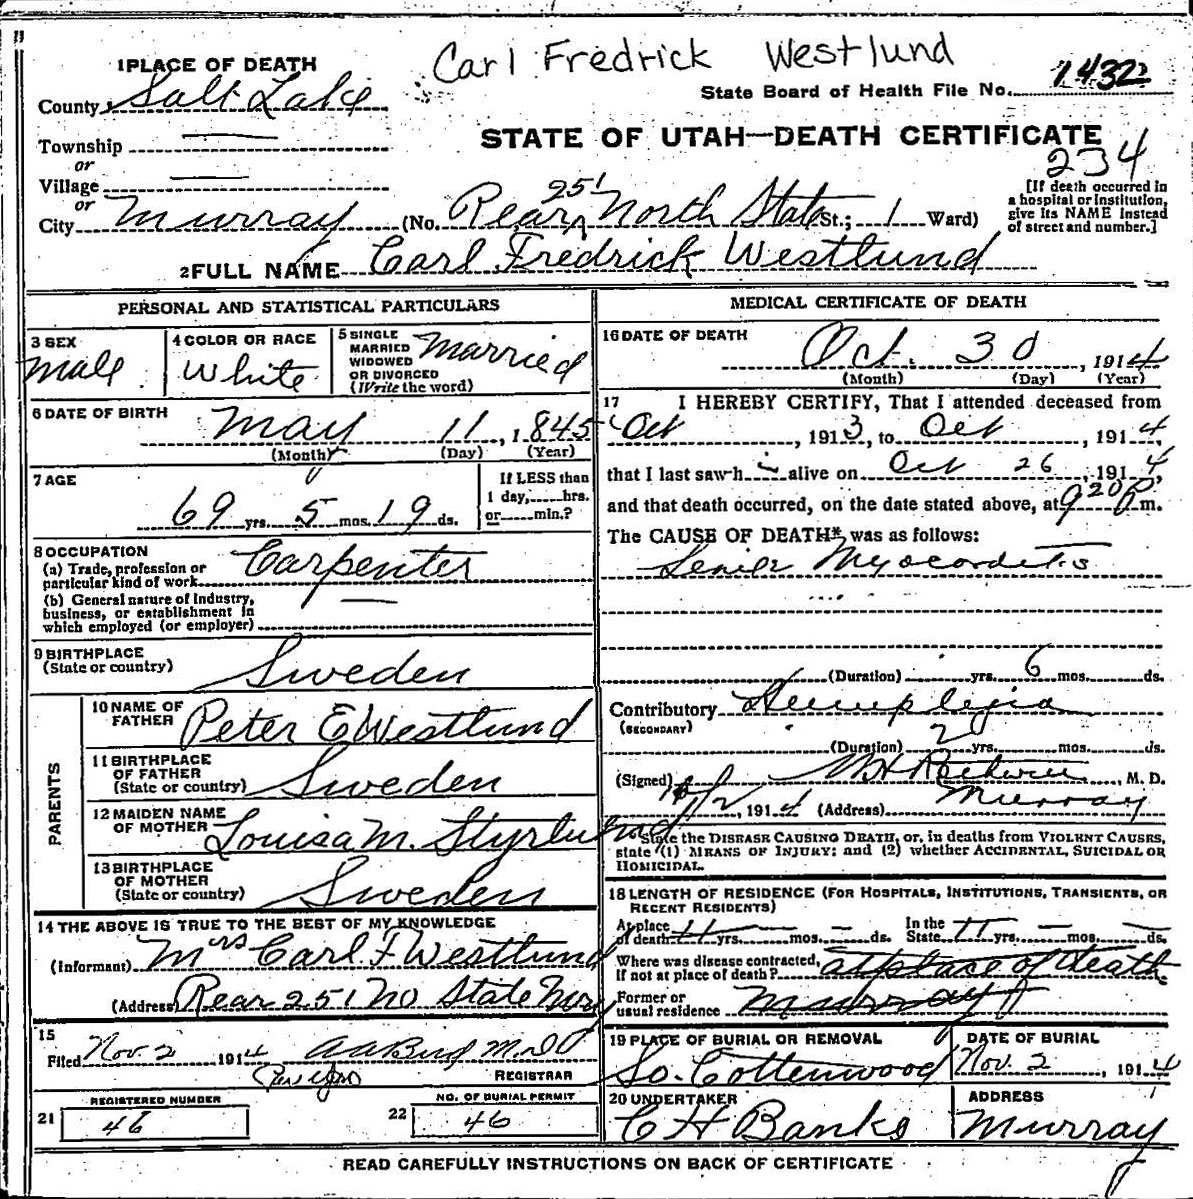 Carl Fredrick Westlund
1 PLACE OF DEATH
State Board of Health File No. 1432
County Salt Lake
STATE OF UTAH—DEATH CERTIFICATE
234
Township
or
Village
or
City Murray (No. Rear 251 North State St.; 1 Ward)
[If death occurred in
a hospital or institution,
give its NAME instead
of street and number.]
2 FULL NAME Carl Fredrick Westlund
PERSONAL AND STATISTICAL PARTICULARS
3 SEX
Male
4 COLOR OR RACE
White
5 SINGLE
MARRIED
WIDOWED
OR DIVORCED
(Write the word)
Married
6 DATE OF BIRTH
May 11, 1845
(Month) (Day) (Year)
7 AGE
69 yrs. 5 mos. 19 ds.
If LESS than
1 day, hrs.
or min.?
8 OCCUPATION
(a) Trade, profession or
particular kind of work Carpenter
(b) General nature of industry,
business, or establishment in
which employed (or employer)
9 BIRTHPLACE
(State or country) Sweden
PARENTS
10 NAME OF
FATHER Peter E Westlund
11 BIRTHPLACE
OF FATHER
(State or country) Sweden
12 MAIDEN NAME
OF MOTHER Louisa M.
13 BIRTHPLACE
OF MOTHER
(State or country) Sweden
14 THE ABOVE IS TRUE TO THE BEST OF MY KNOWLEDGE
(Informant) Mrs Carl F Westlund
(Address) Rear 251 No State
15
Filed Nov. 2 1914
REGISTRAR
REGISTERED NUMBER
21 46
NO. OF BURIAL PERMIT
22 46
MEDICAL CERTIFICATE OF DEATH
16 DATE OF DEATH
Oct. 30, 1914
(Month) (Day) (Year)
17 I HEREBY CERTIFY, That I attended deceased from
Oct, 1913, to Oct, 1914,
that I last saw h i alive on Oct 26, 1914,
and that death occurred, on the date stated above, at 9 20 P. m.
The CAUSE OF DEATH* was as follows:
Senile Myocarditis
(Duration) yrs. 6 mos. ds.
Contributory Hemiplegia
(SECONDARY)
(Duration) 2 yrs. mos. ds.
(Signed) , M. D.
11/2, 1914 (Address) Murray
*State the DISEASE CAUSING DEATH, or, in deaths from VIOLENT CAUSES,
state (1) MEANS OF INJURY; and (2) whether ACCIDENTAL, SUICIDAL OR
HOMICIDAL.
18 LENGTH OF RESIDENCE (FOR HOSPITALS, INSTITUTIONS, TRANSIENTS, OR
RECENT RESIDENTS)
At place
of death 11 yrs. — mos. — ds. In the
State yrs. — mos. — ds.
Where was disease contracted,
if not at place of death? at place of death
Former or
usual residence Murray
19 PLACE OF BURIAL OR REMOVAL
So. Cottonwood
DATE OF BURIAL
Nov. 2, 1914
20 UNDERTAKER
C H Banks
ADDRESS
Murray
READ CAREFULLY INSTRUCTIONS ON BACK OF CERTIFICATE